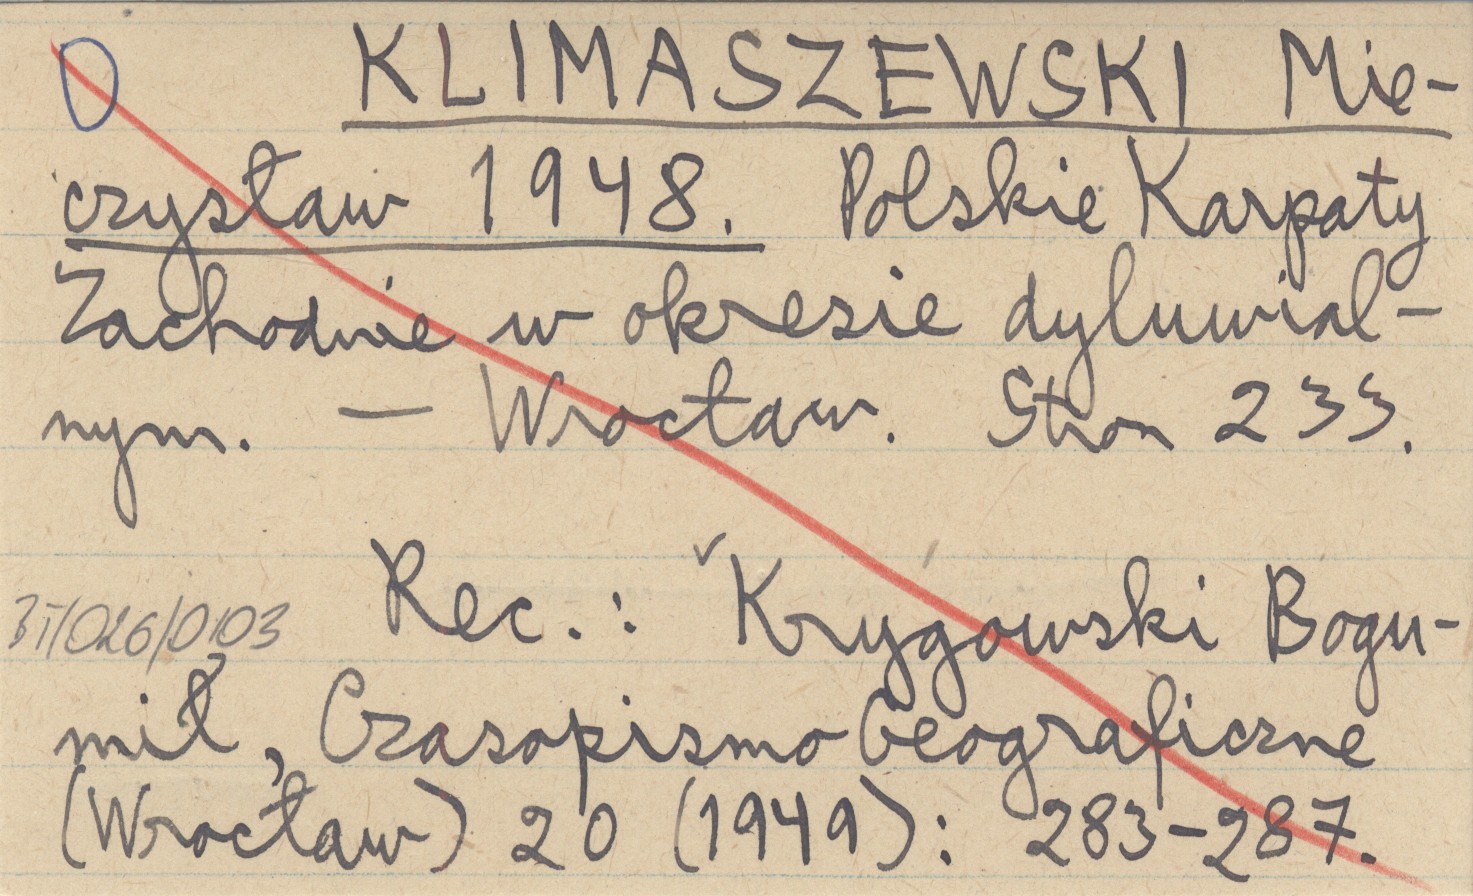 KLIMASZEWSKI Mie-
czysław 1948. Polskie Karpaty
Zachodnie w okresie dyluwial-
nym. — Wrocław. Stron 233.
Rec.: Krygowski Bogu-
BT/026/0103
mił, Czasopismo Geograficzne
(Wrocław) 20 (1949): 283-287.